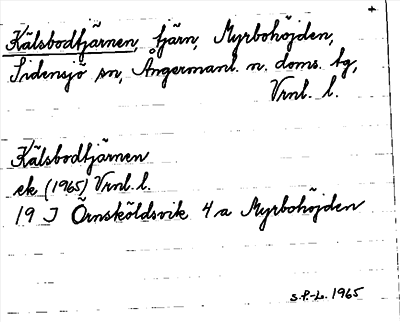 Kälsbodtjärnen, tjärn, Myrbohöjden,
Sidensjö sn, Ångermanl. n. doms. tg,
Vrnl. l.
Kälsbodtjärnen
ek (1965) Vrnl. l.
19 J Örnsköldsvik 4 a Myrbohöjden
S.P.-L. 1965